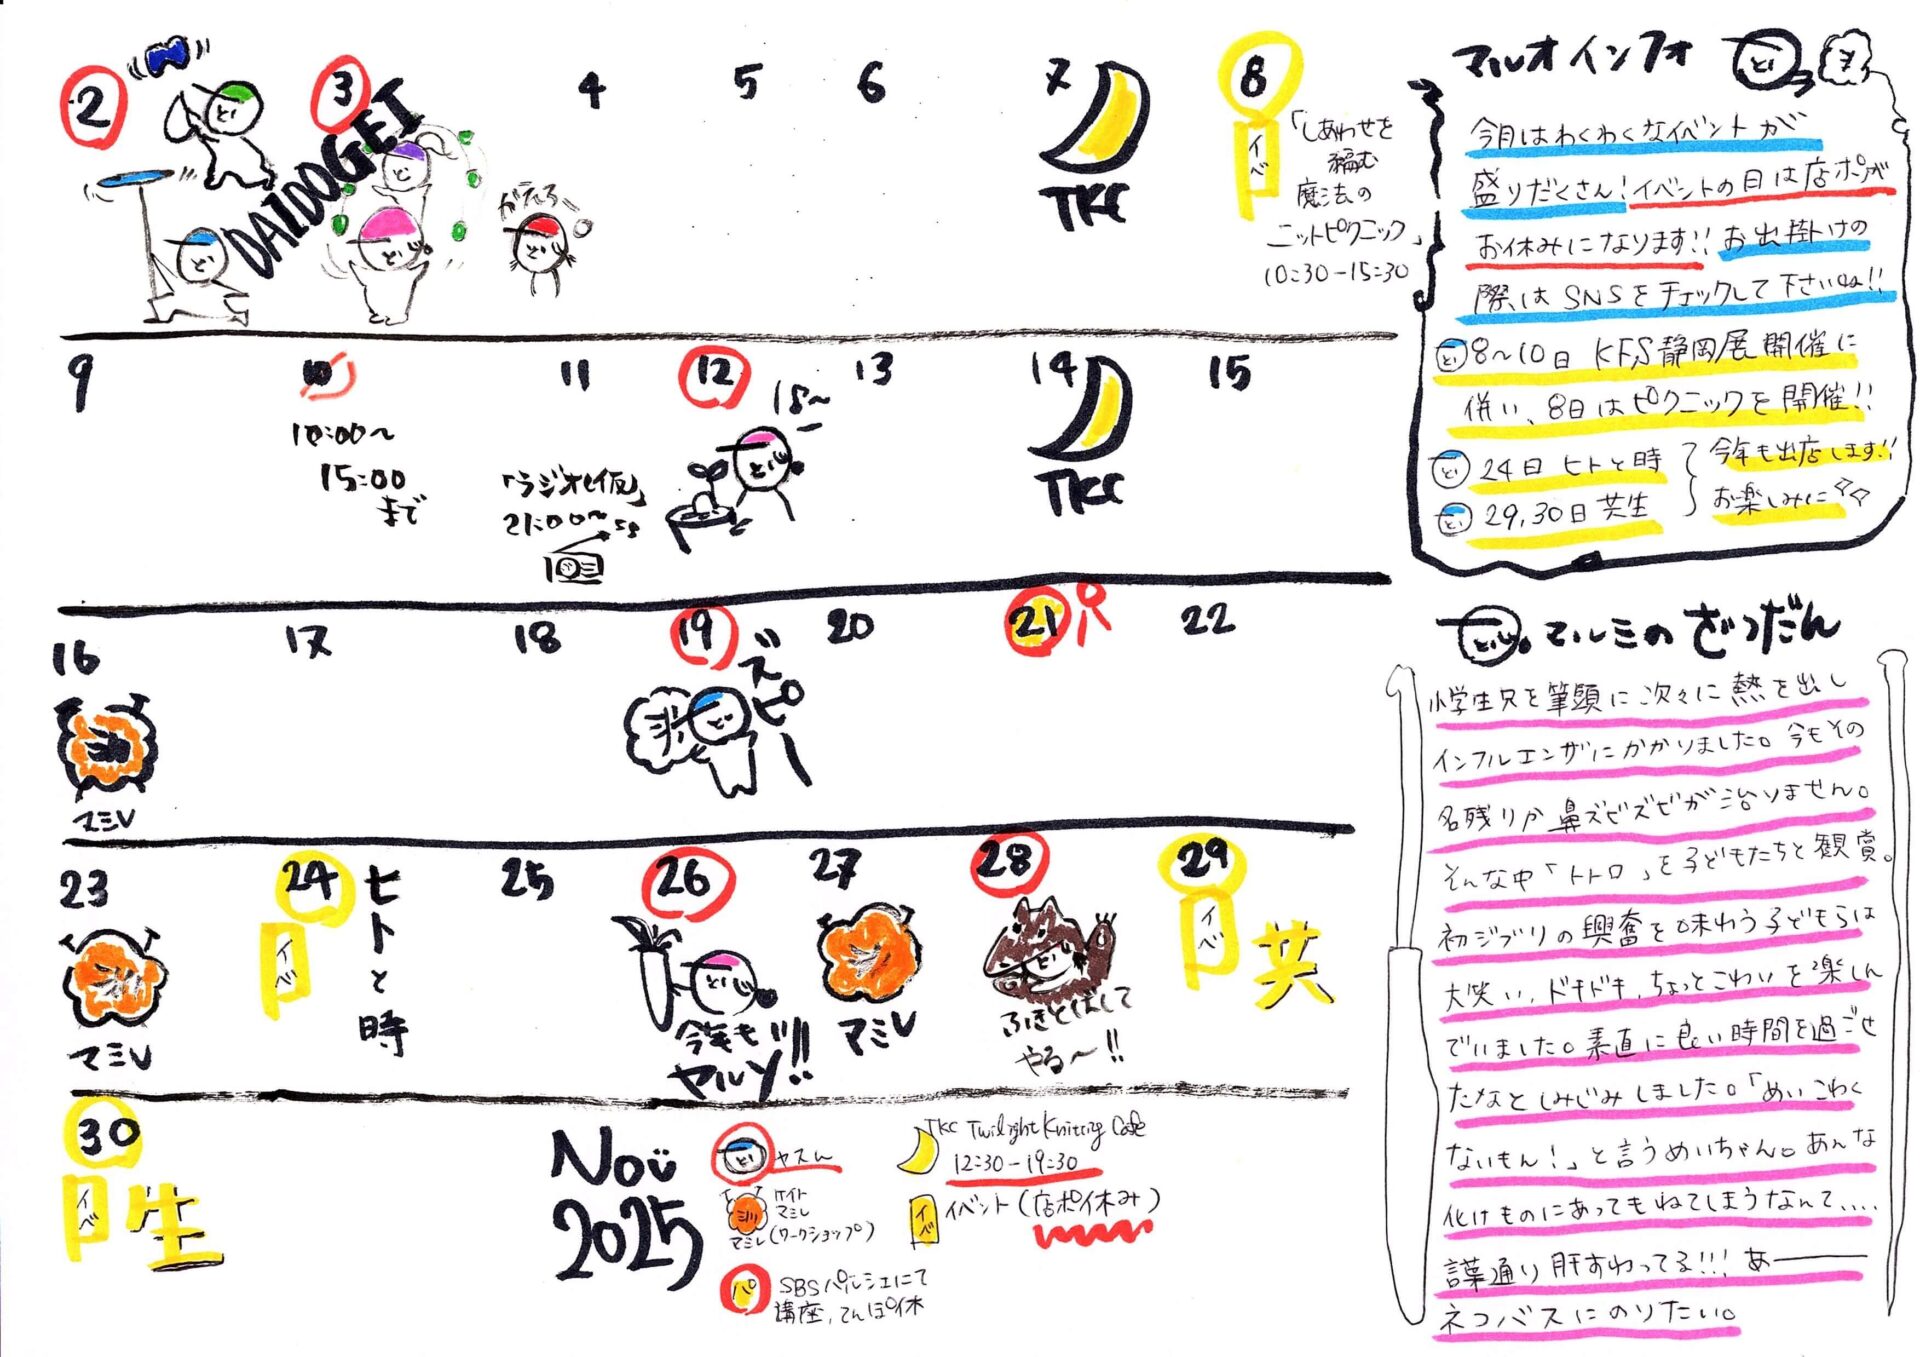 2
3
4
5
6
7
8
DAIDOGEI
TKC
イベ
「しあわせを
編む
魔法の
ニットピクニック」
10:30-15:30
9
10
11
12
13
14
15
10:00〜
15:00
まで
「ラジオ(仮)」
21:00〜
18〜
TKC
16
17
18
19
20
21
22
マミレ
ズピー
23
24
25
26
27
28
29
マミレ
イベ
ヒトと時
今年も
ヤルゾ!!
マミレ
ふきとばして
やる〜!!
イベ
共
30
イベ
生
Nov
2025
ヤスム
ケイト
マミレ
マミレ(ワークショップ)
パ
SBSパルシェにて
講座,てんぽ休
TKC Twilight Knitting Cafe
12:30-19:30
イベ
イベント(店ポ休み)
マルオインフォ
今月はわくわくなイベントが
盛りだくさん!イベントの日は店ポが
お休みになります!!お出掛けの
際はSNSをチェックして下さいね!!
8〜10日 KFS静岡展開催に
併い、8日はピクニックを開催!!
24日 ヒトと時
29,30日 共生
今年も出店します!!
お楽しみに
マルミのざつだん
小学生兄を筆頭に次々に熱を出し
インフルエンザにかかりました。今もその
名残りか鼻ズビズビが治りません。
そんな中「トトロ」を子どもたちと観賞。
初ジブリの興奮を味わう子どもらは
大笑い,ドキドキ,ちょっとこわいを楽しん
でいました。素直に良い時間を過ごせ
たなとしみじみしました。「めいこわく
ないもん!」と言うめいちゃん。あんな
化けものにあってもねてしまうなんて....
言葉通り肝すわってる!!! あ——
ネコバスにのりたい。